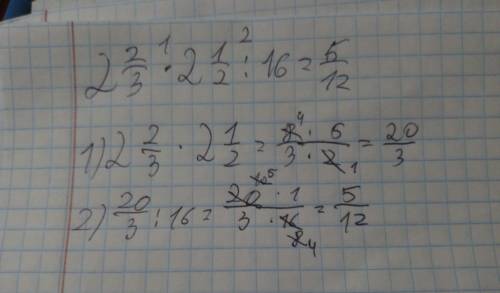 2 2/3 ·¹ 2 1/2 :² 16 = 5/12
1) 2 2/3 · 2 1/2 = 8⁴ · 5 / 3 · 2₁ = 20/3
2) 20/3 : 16 = 20 ¹⁰ ⁵ · 1 / 3 · 16 ₈ ₄ = 5/12